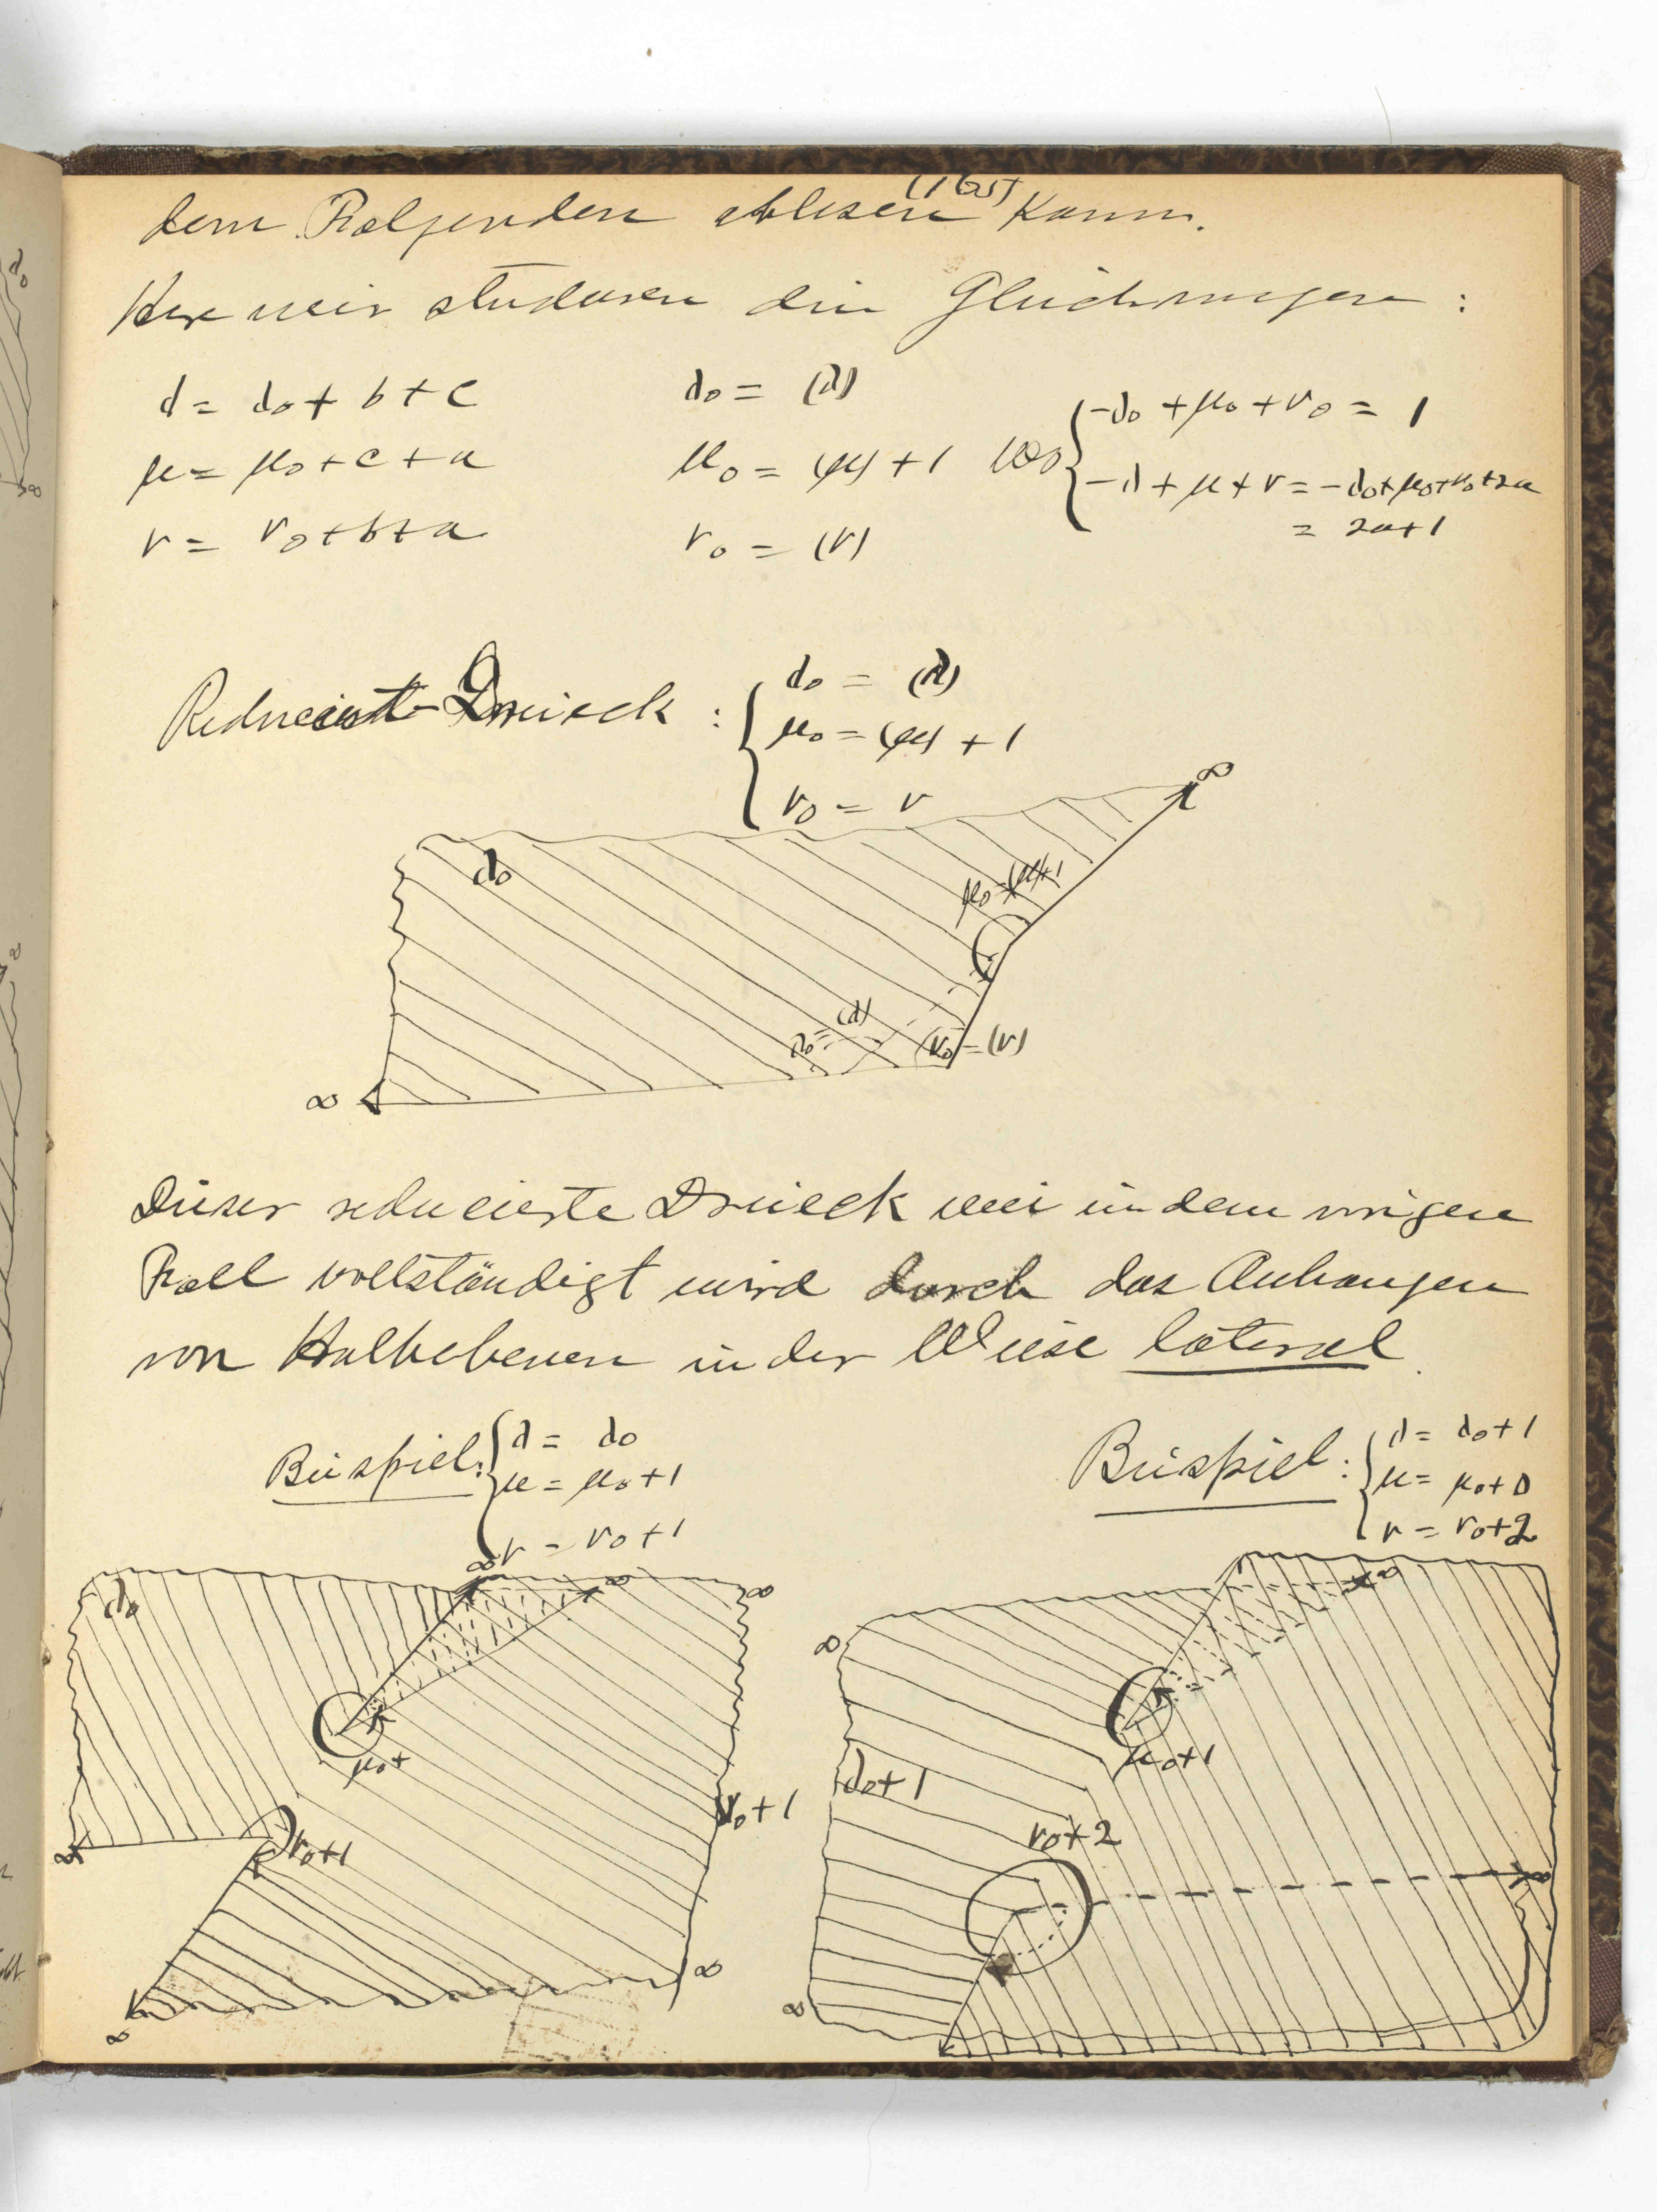 (165)
dem Folgenden ablesen kann.
Hier wir studieren die Gleichungen :
λ = λ₀ + b + c
μ = μ₀ + c + a
ν = ν₀ + b + a
λ₀ = (λ)
μ₀ = (μ) + 1
ν₀ = (ν)
wo
-λ₀ + μ₀ + ν₀ = 1
-λ + μ + ν = -λ₀ + μ₀ + ν₀ + 2a
= 2a+1
Reduciert-Dreieck :
λ₀ = (λ)
μ₀ = (μ) + 1
ν₀ = ν
∞
λ₀
μ₀=(μ)+1
λ₀=(λ)
ν₀ = (ν)
∞
Dieser reducierte Dreieck wie in dem vorigen
Fall vollständigt wird durch das Anhangen
von Halbebenen in der Weise lateral.
Beispiel:
λ = λ₀
μ = μ₀+1
ν = ν₀+1
Beispiel:
λ = λ₀+1
μ = μ₀+0
ν = ν₀+2
∞ ∞ ∞
λ₀
μ₀+
ν₀+1
∞
ν₀+1
∞
∞
∞
∞
μ₀+1
λ₀+1
ν₀+2
∞
∞